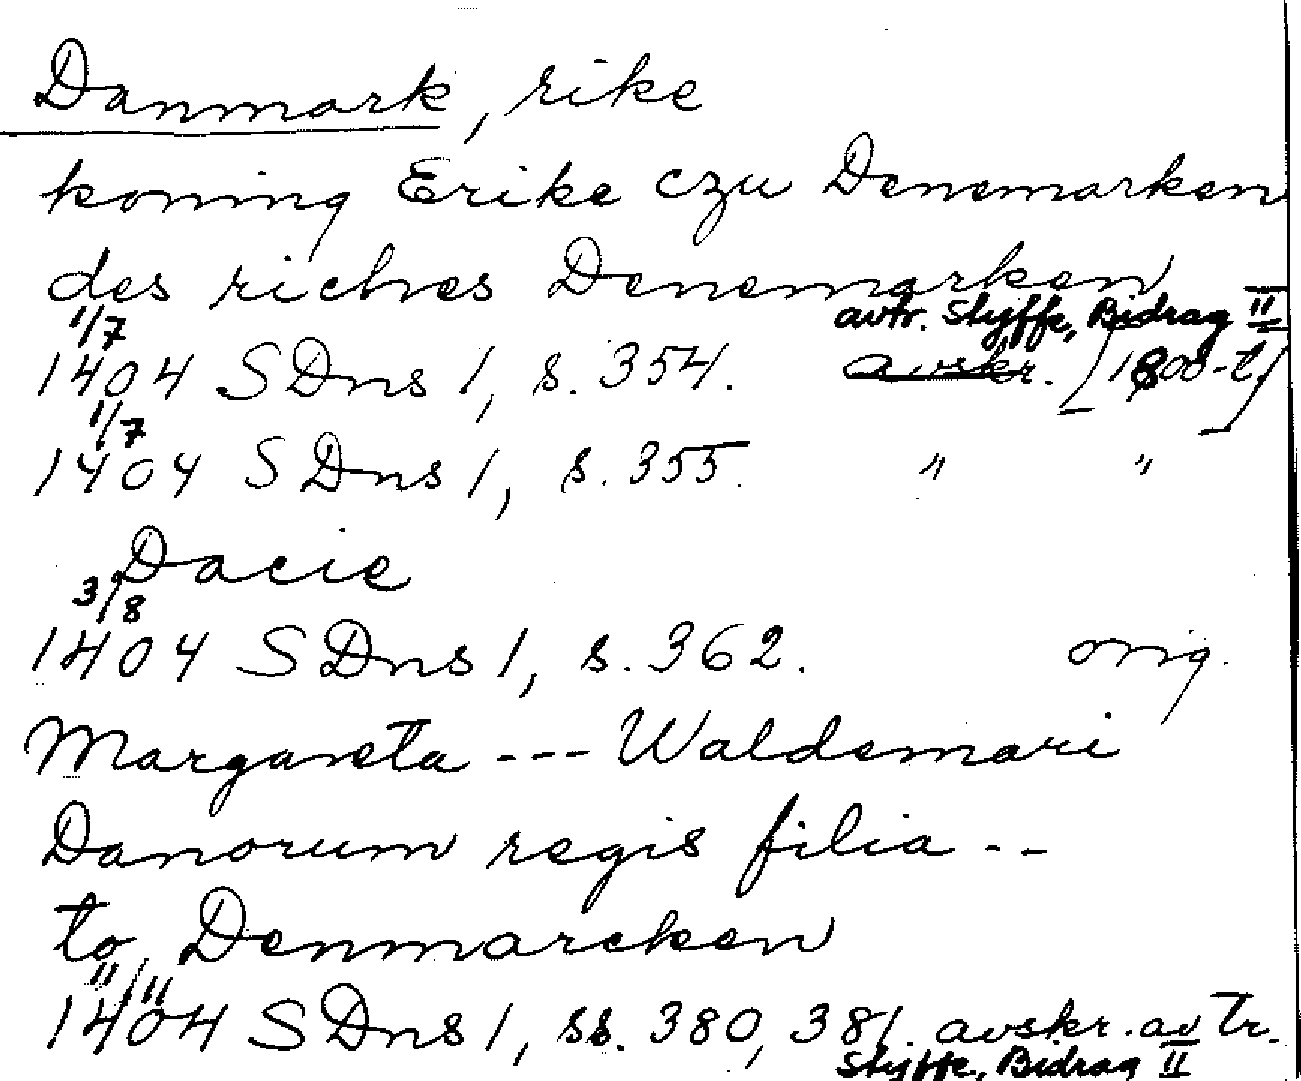 Danmark, rike
koning Erike czu Denemarken
des riches Denemarken
1/7 avtr. Styffe, Bidrag II
1404 SDns 1, s. 354. avskr. [1800-t]
1/7
1404 SDns 1, s. 355. " "
Dacie
3/8
1404 SDns 1, s. 362. orig.
Margareta --- Waldemari
Danorum regis filia --
to Denmarcken
11/11
1404 SDns 1, ss. 380, 381. avskr. av tr.
Styffe, Bidrag II